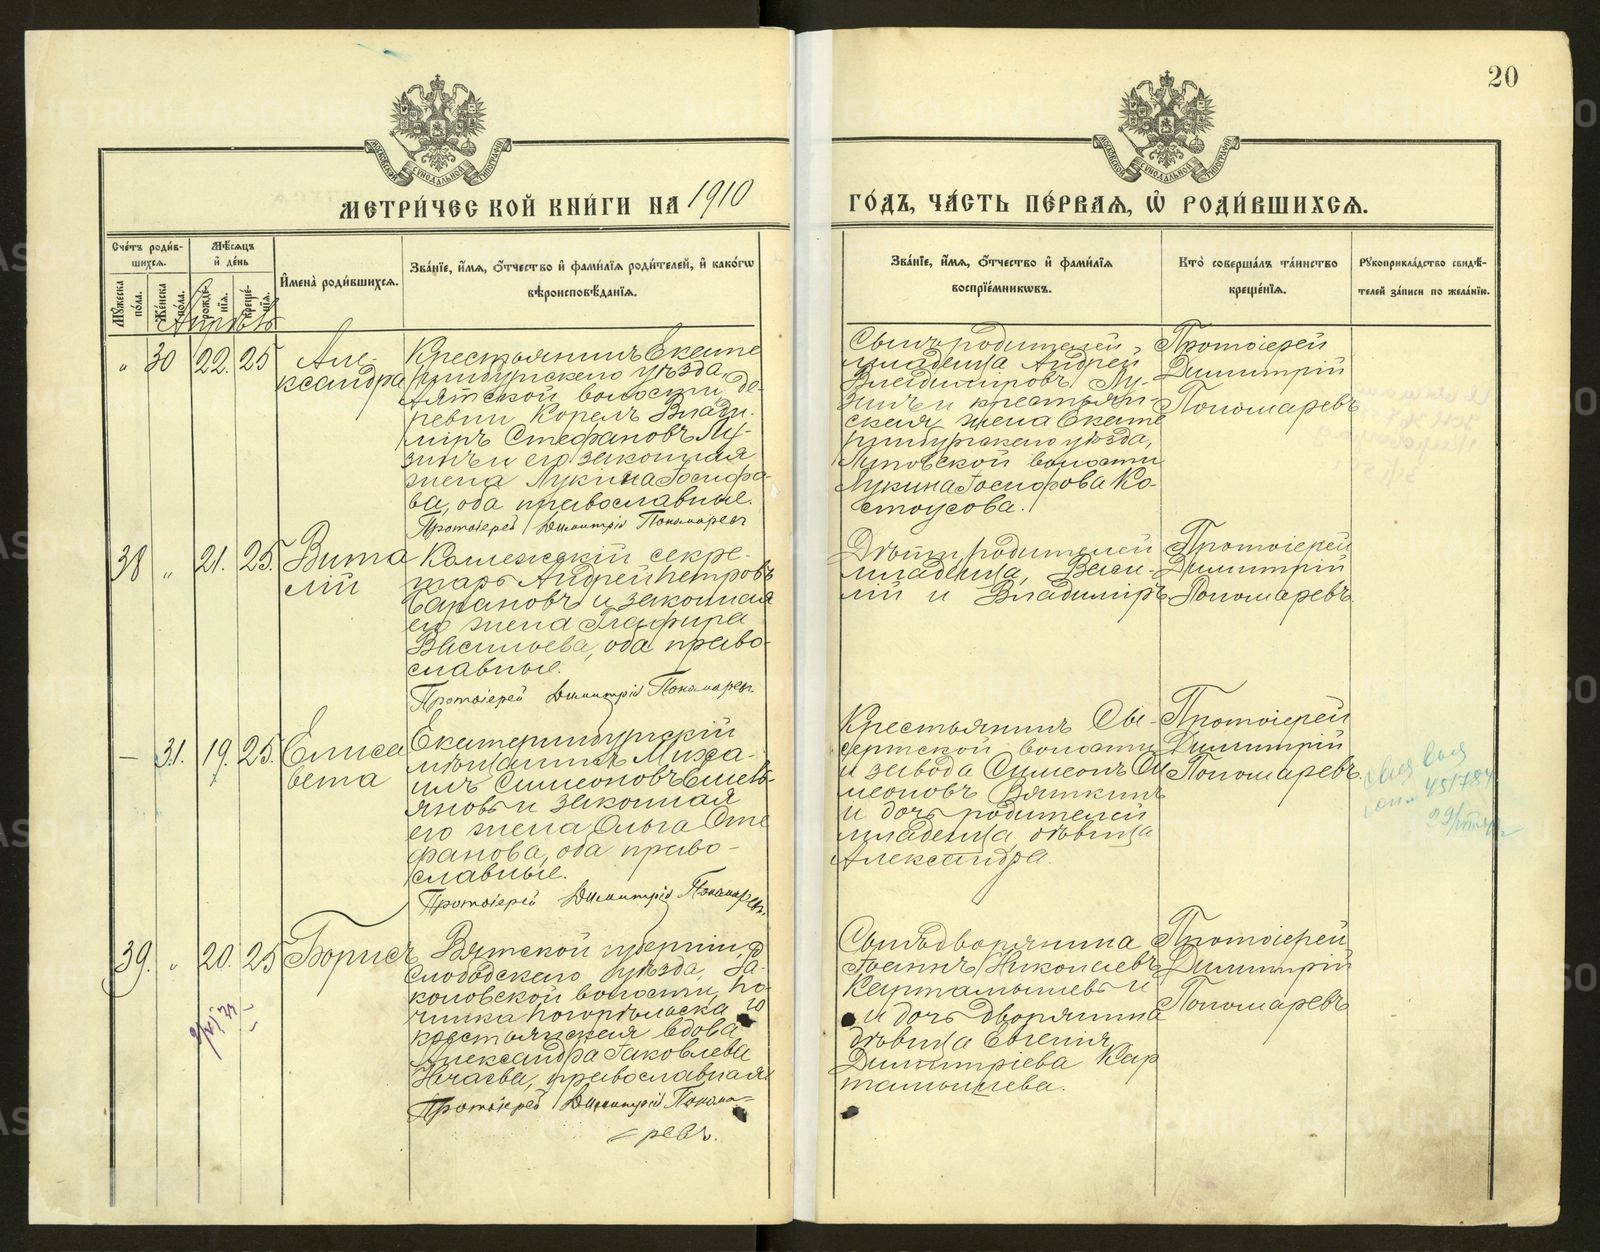 20
МЕТРИ́ЧЕСКОЙ КНИ́ГИ НА 1910
ГО́ДЪ, ЧА́СТЬ ПЕ́РВАѦ, Ѽ РОДИ́ВШИХСѦ.
Сче́тъ роди́в-
шихсѧ.
Мꙋ́жеска
по́ла.
Же́нска
по́ла.
Мѣ́сѧцъ
и҆ де́нь
рожде́-
нїѧ.
креще́-
нїѧ.
И҆мена̀ роди́вшихсѧ.
Зва́нїе, и҆́мѧ, ѻ҆́тчество и҆ фами́лїѧ роди́телей, и҆ како́гѡ
вѣроисповѣ́данїѧ.
Зва́нїе, и҆́мѧ, ѻ҆́тчество и҆ фами́лїѧ
воспрїе́мникѡвъ.
Кто̀ соверша́лъ та́инство
креще́нїѧ.
Рꙋкоприкла́дство свидѣ́-
телей за́писи по жела́нїю.
Апрѣль
" 30 22. 25
Але-
ксандра
Крестьянинъ Екате
ринбургскаго уѣзда,
Аятской волости, де-
ревни Корелъ Влади-
миръ Стефановъ Лу-
зинъ и его законная
жена Лукина Іосифо-
ва, оба православные.
Протоіерей Димитрій Пономаревъ
Сынъ родителей
младенца Андрей
Владиміровъ Лу-
зинъ и крестьян-
ская жена Екате
ринбургскаго уѣзда,
волости
Лукина Іосифова Ко-
стоусова.
Протоіерей
Димитрій
Пономаревъ
38 " 21. 25.
Вита
лій
Коллежскій секре-
тарь Андрей Петровъ
и законная
его жена Глафира
Васильева, оба право-
славные.
Протоіерей Димитрій Пономаревъ
Дѣти родителей
младенца, Васи-
лій и Владиміръ
Протоіерей
Димитрій
Пономаревъ.
— 31. 19. 25.
Елиса
вета
Екатеринбургскій
мѣщанинъ Миха-
илъ Симеоновъ Емель-
яновъ и законная
его жена Ольга Сте
фанова, оба право-
славные.
Протоіерей Димитрій Пономаревъ.
Крестьянинъ Сы-
сертской волости
и завода Симеонъ Си
меоновъ Вяткинъ
и дочь родителей
младенца, дѣвица
Александра.
Протоіерей
Димитрій
Пономаревъ.
39. " 20. 25
Борисъ
Вятской губерніи,
Слободскаго уѣзда,
волости, по-
чинка
крестьянская вдова
Александра Іаковлева
Нечаева, православная
Протоіерей Димитрій Понома-
ревъ.
Сынъ дворянина
Іоаннъ Николаевъ
Картамышевъ и
и дочь дворянина
дѣвица Евгенія
Димитріева Кар
тамышева.
Протоіерей
Димитрій
Пономаревъ